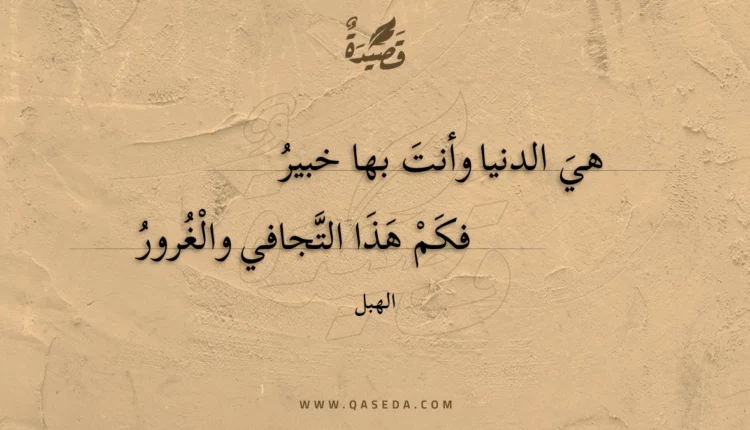 قَصِيْدَةٌ
هيَ الدنيا وأنتَ بها خبيرُ
فكَمْ هَذَا التَّجافي والْغُرورُ
الهبل
WWW.QASEDA.COM